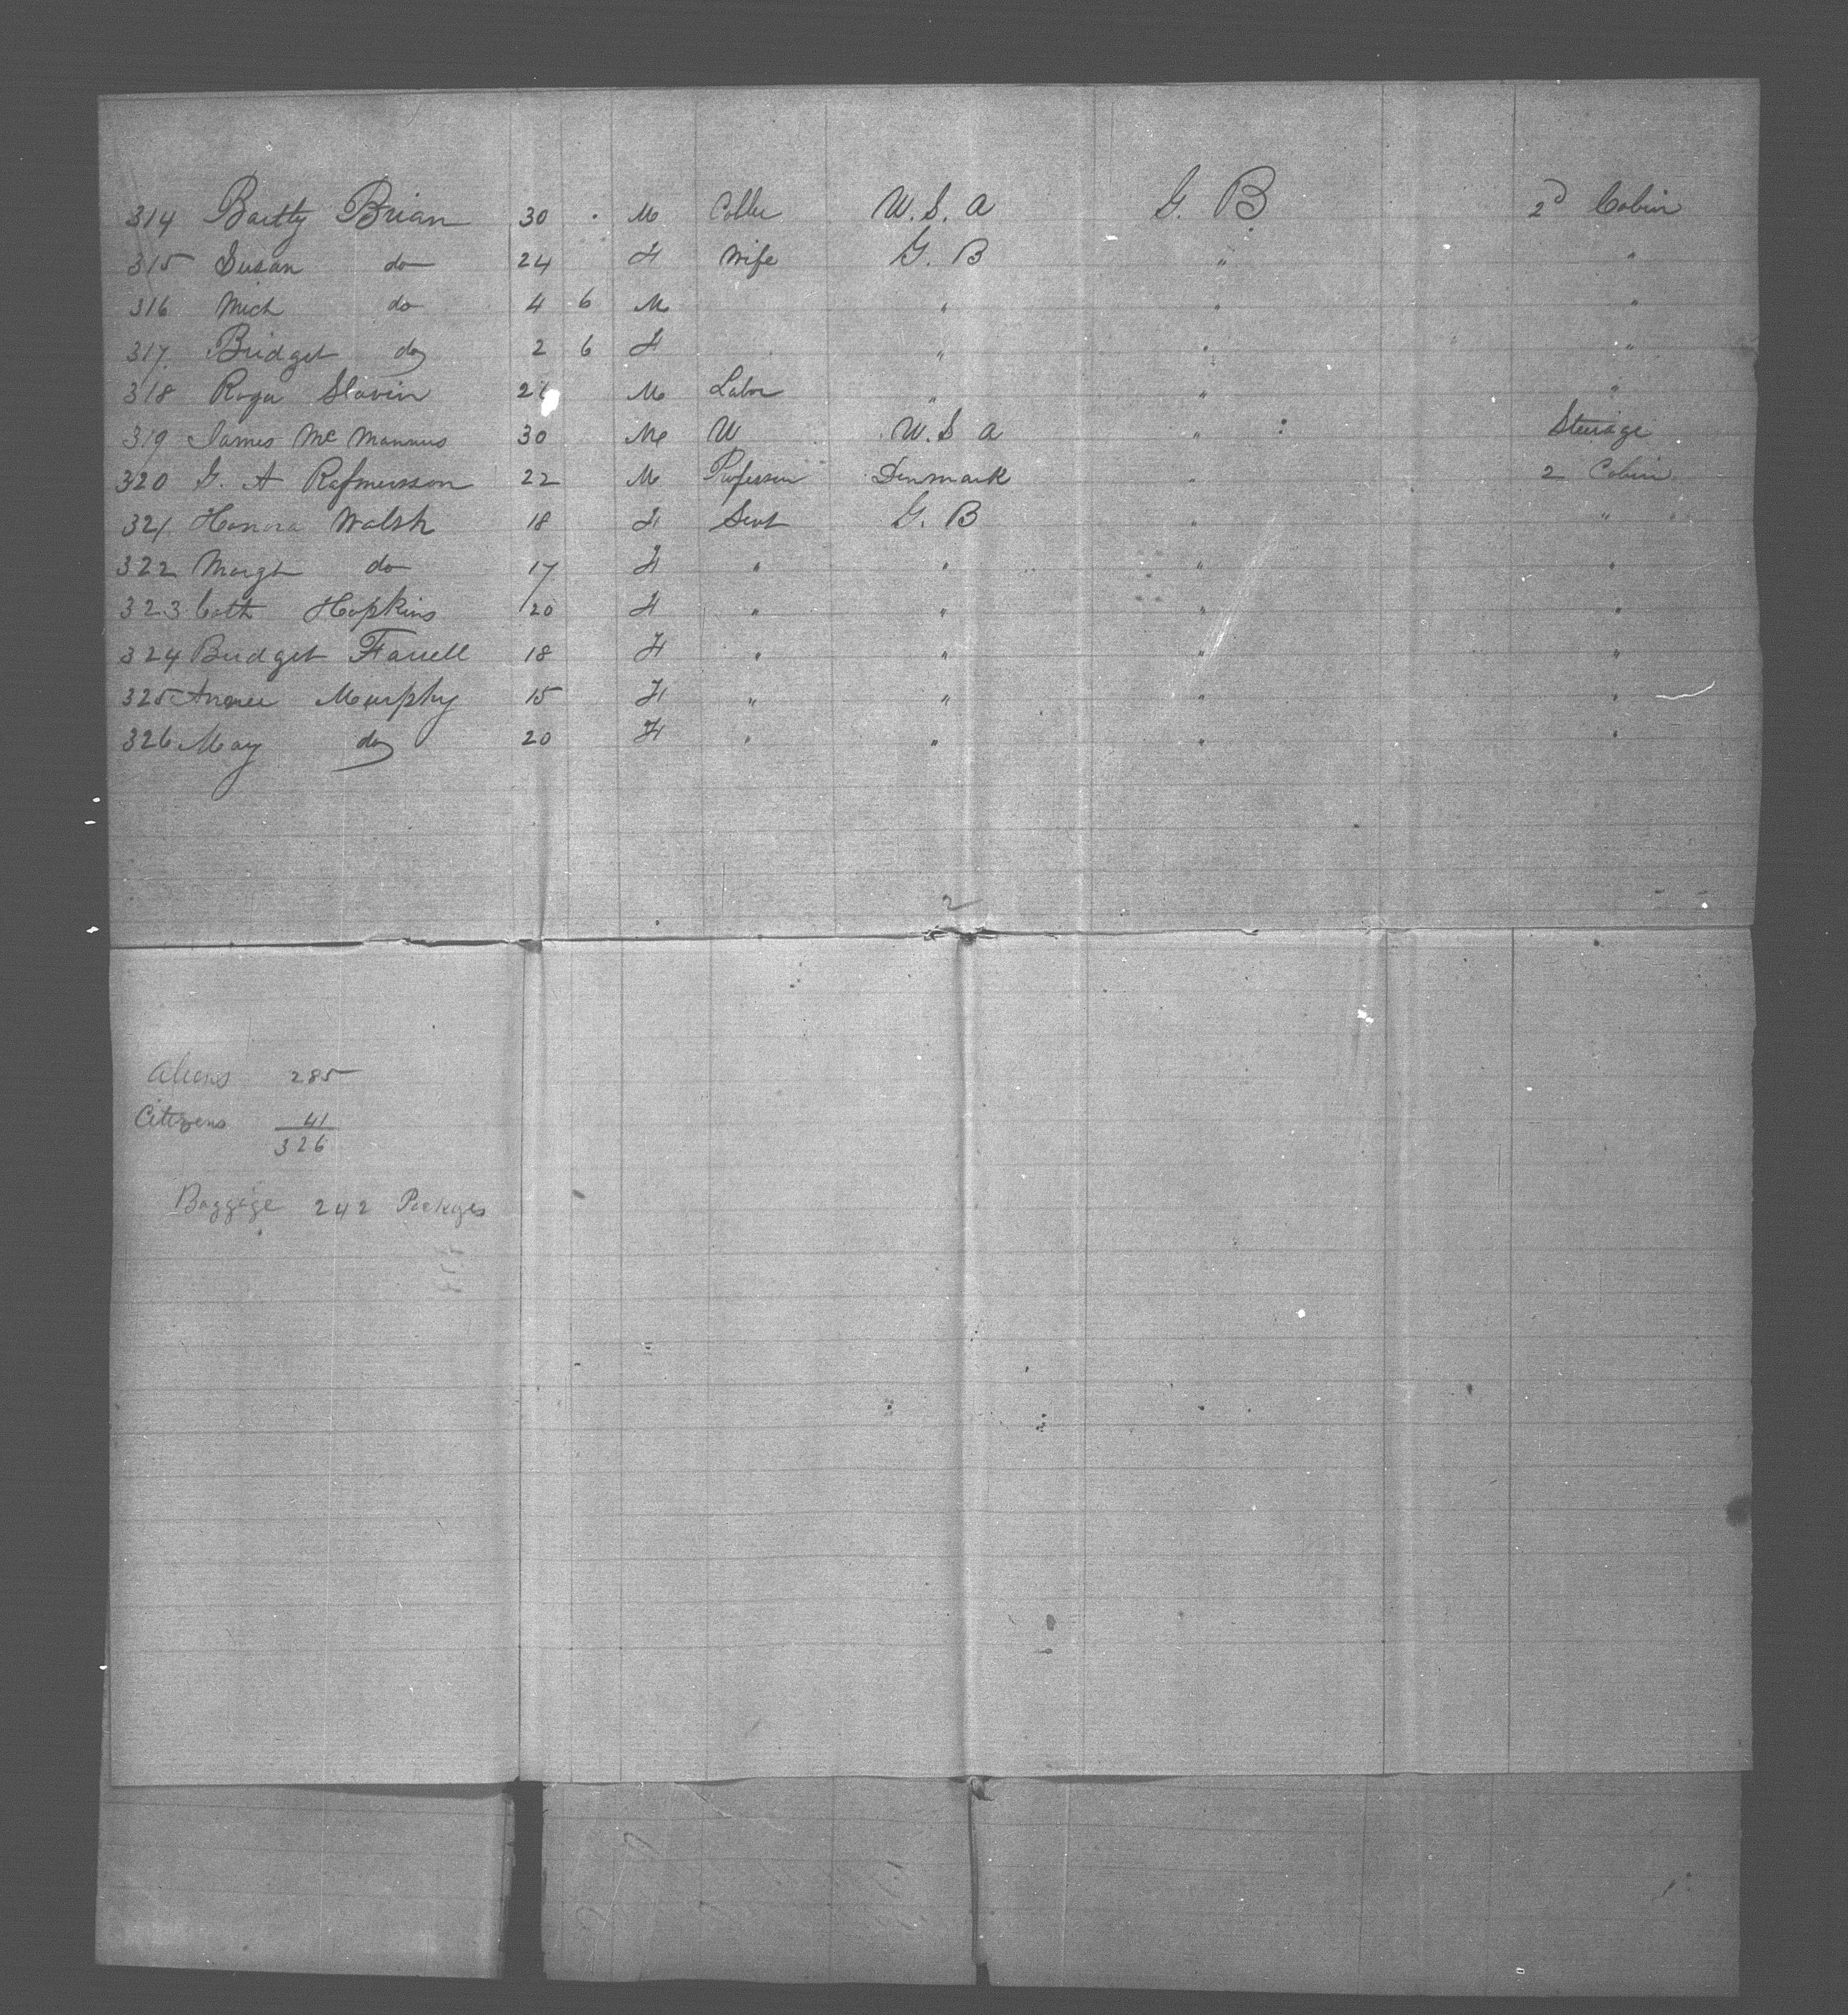 314 Bartly Brian 30 M Collier U.S.A G.B 2D Cabin
315 Susan do 24 F Wife G.B " "
316 Mich do 4 6 M " " "
317 Bridget do 2 6 F " " "
318 Roger Slavin M Labor " " "
319 James McMannus 30 M U.S.A " Steerage
320 G. A 22 M Professor Denmark " 2 Cabin
321 Honora Walsh 18 F Servt G.B " "
322 Margt do 17 F " " " "
323 Cath Hopkins 20 F " " " "
324 Bridget Farrell 18 F " " " "
325 Murphy 15 F " " " "
326 May do 20 F " " " "
2
Aliens 285
Citizens 41
326
Baggage 242 Packages